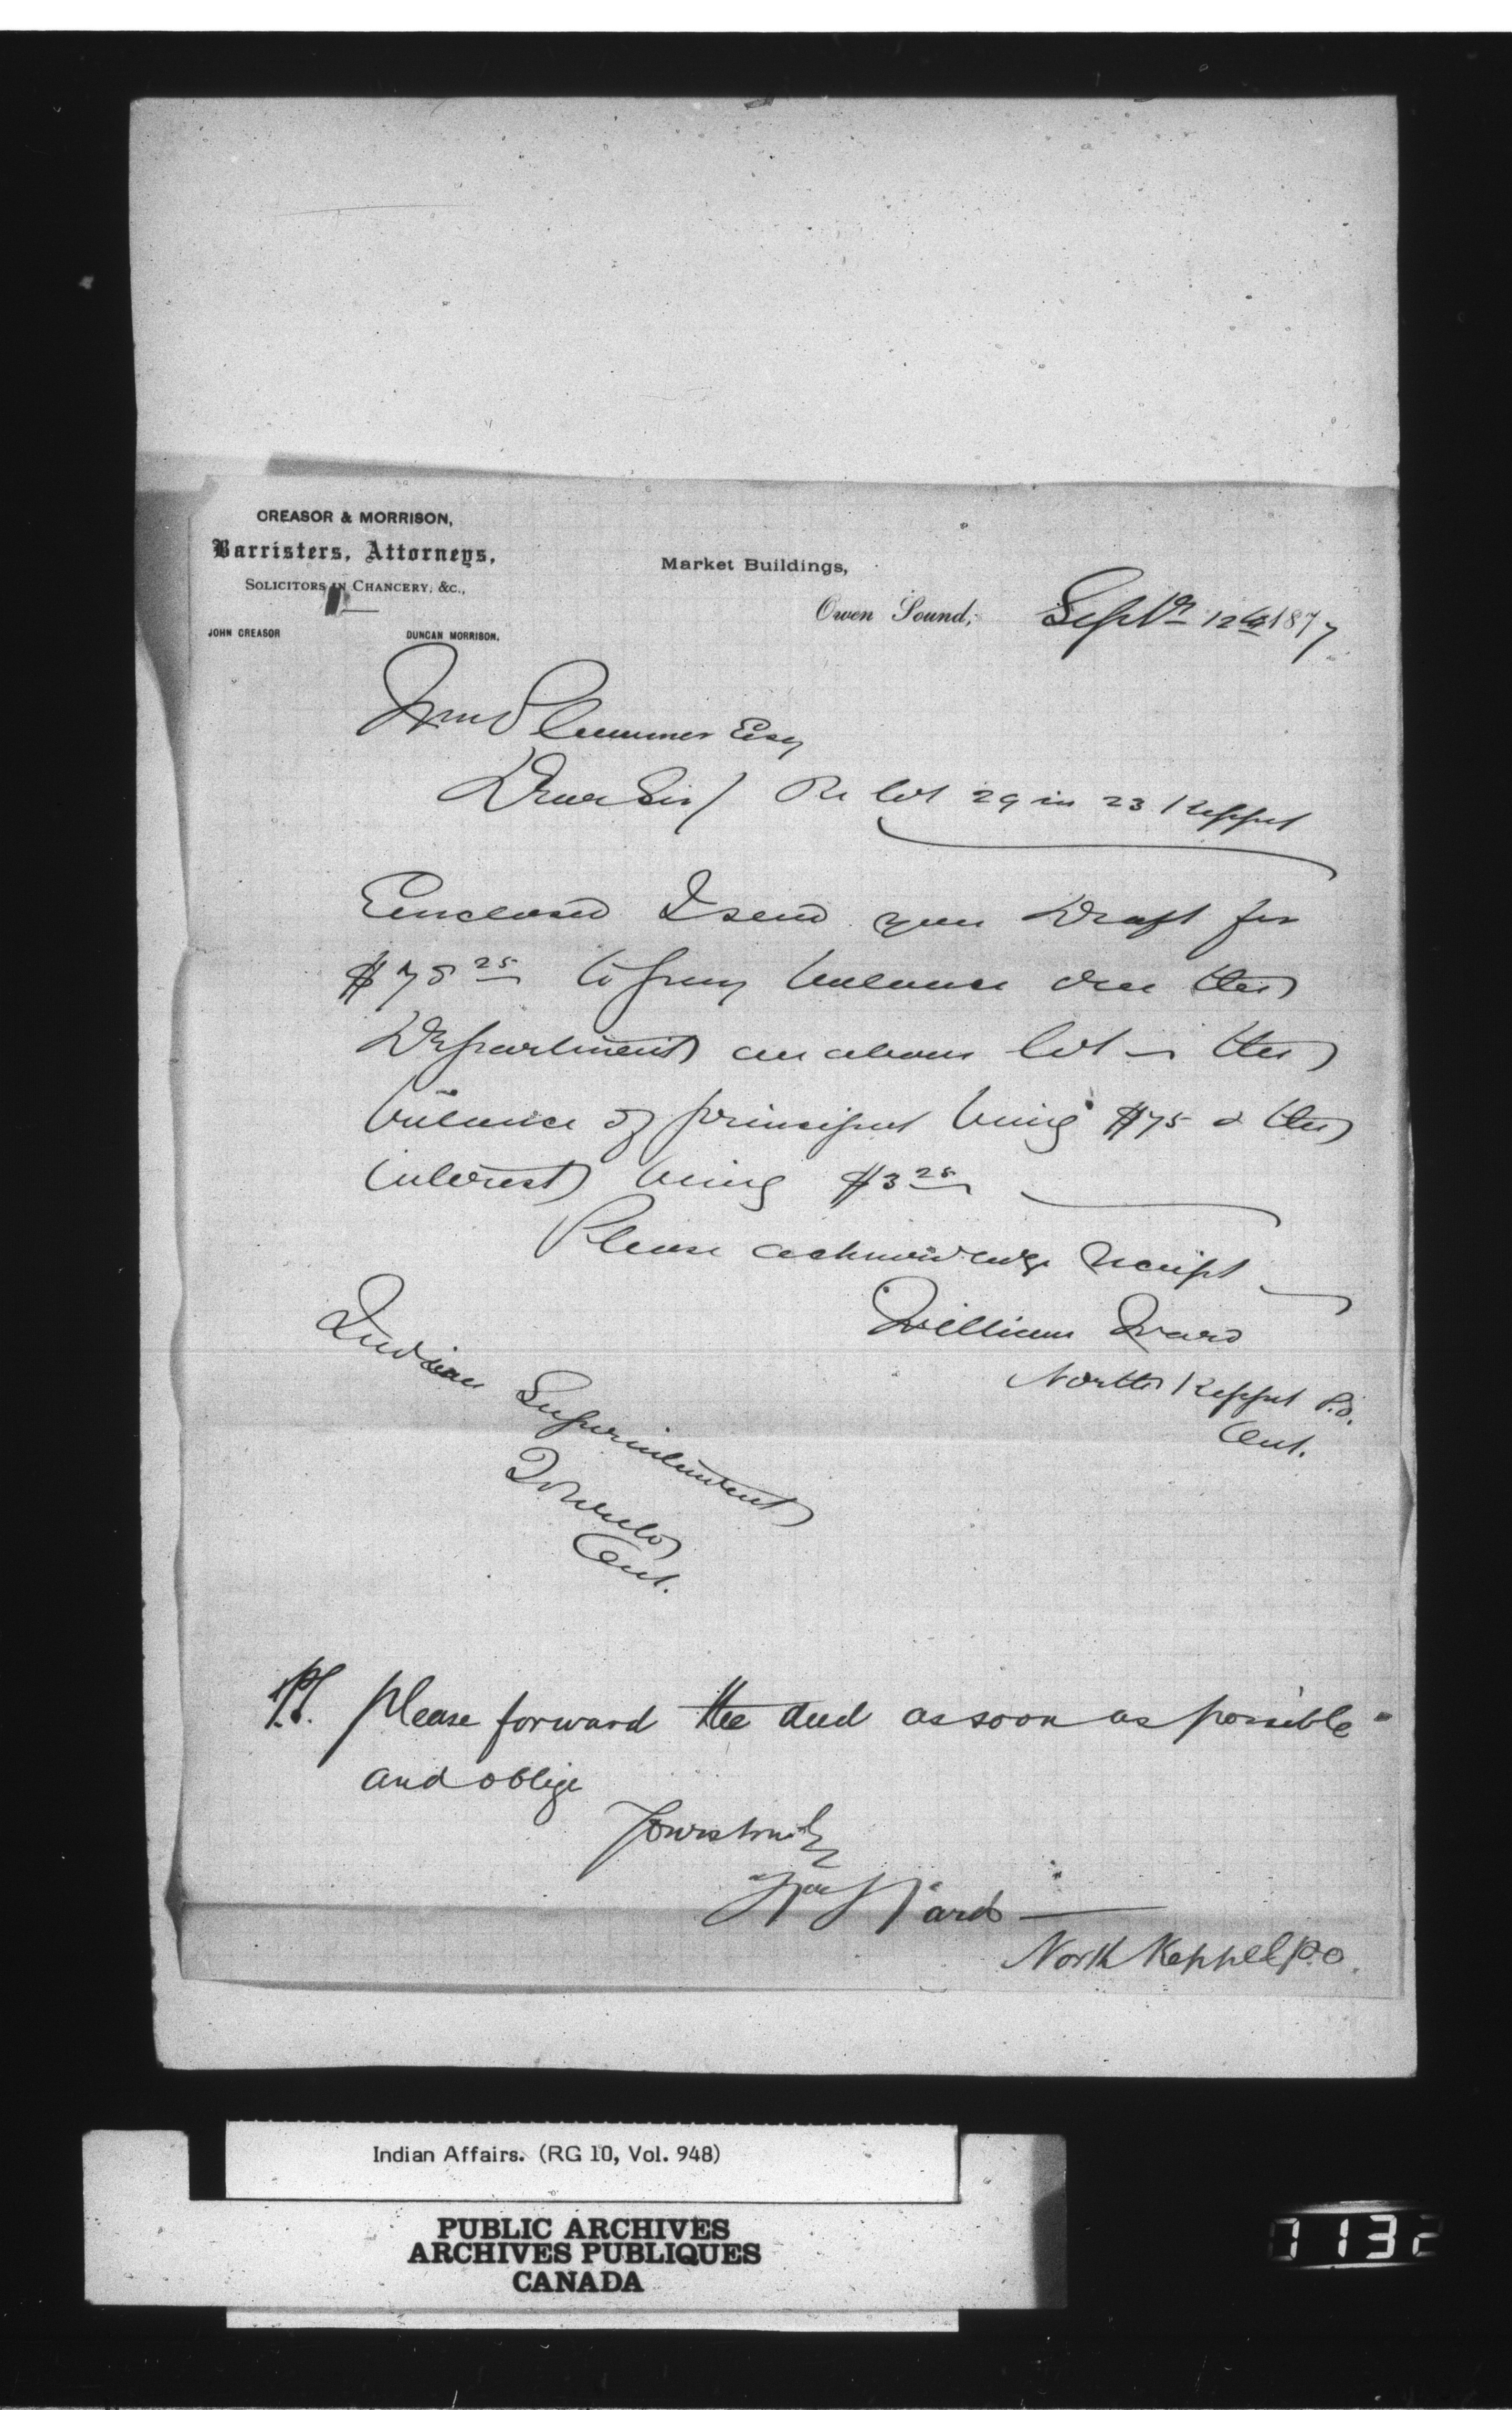 CREASOR & MORRISON,
Barristers, Attorneys,
SOLICITORS IN CHANCERY, &C.,
JOHN CREASOR DUNCAN MORRISON.
Market Buildings,
Owen Sound, Septr 12th 1877
Wm Plummer Esq
Dear Sir / Re lot 29 in 23 Keppel
Enclosed I send you Draft for
$78 25 to pay balance due the
Department on above lot - the
balance of principal being $75 & the
interest being $3 25
Please acknowledge receipt
William Ward
North Keppel P.O.
Ont.
Indian Superintendent
Toronto
Ont.
P.S. please forward the deed as soon as possible
and oblige
Yours truly
Wm Ward
North Keppel P.O.
Indian Affairs. (RG 10, Vol. 948)
PUBLIC ARCHIVES
ARCHIVES PUBLIQUES
CANADA